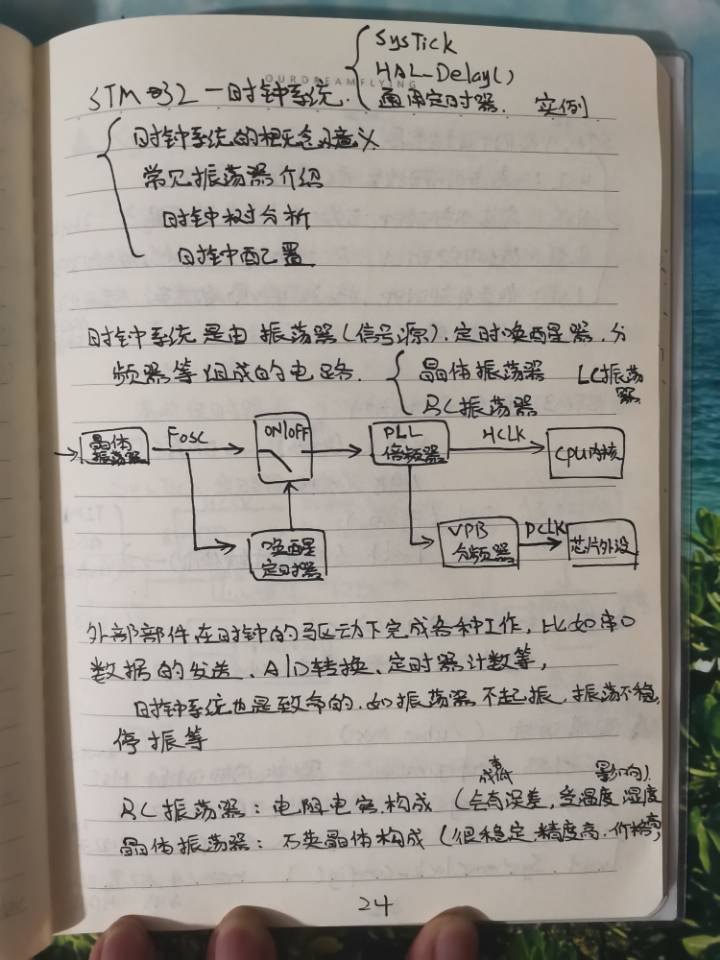 SysTick
HAL_Delay()
OURDREAMFLYING
STM32 一时钟系统. 通用定时器. 实例
时钟系统的概念及意义
常见振荡器介绍
时钟树分析
时钟配置
时钟系统是由振荡器(信号源).定时唤醒器.分
频器等组成的电路. 晶体振荡器 LC振荡器
RC振荡器
晶体振荡器 Fosc ON/OFF PLL倍频器 HCLK CPU内核
唤醒定时器 VPB分频器 PCLK 芯片外设
外部部件在时钟的驱动下完成各种工作,比如串口
数据的发送、A/D转换、定时器计数等,
时钟系统也是致命的.如振荡器不起振.振荡不稳,
停振等
成本低 影响).
RC振荡器:电阻电容构成(会有误差,受温度湿度
晶体振荡器:石英晶体构成(很稳定.精度高.价格高)
24